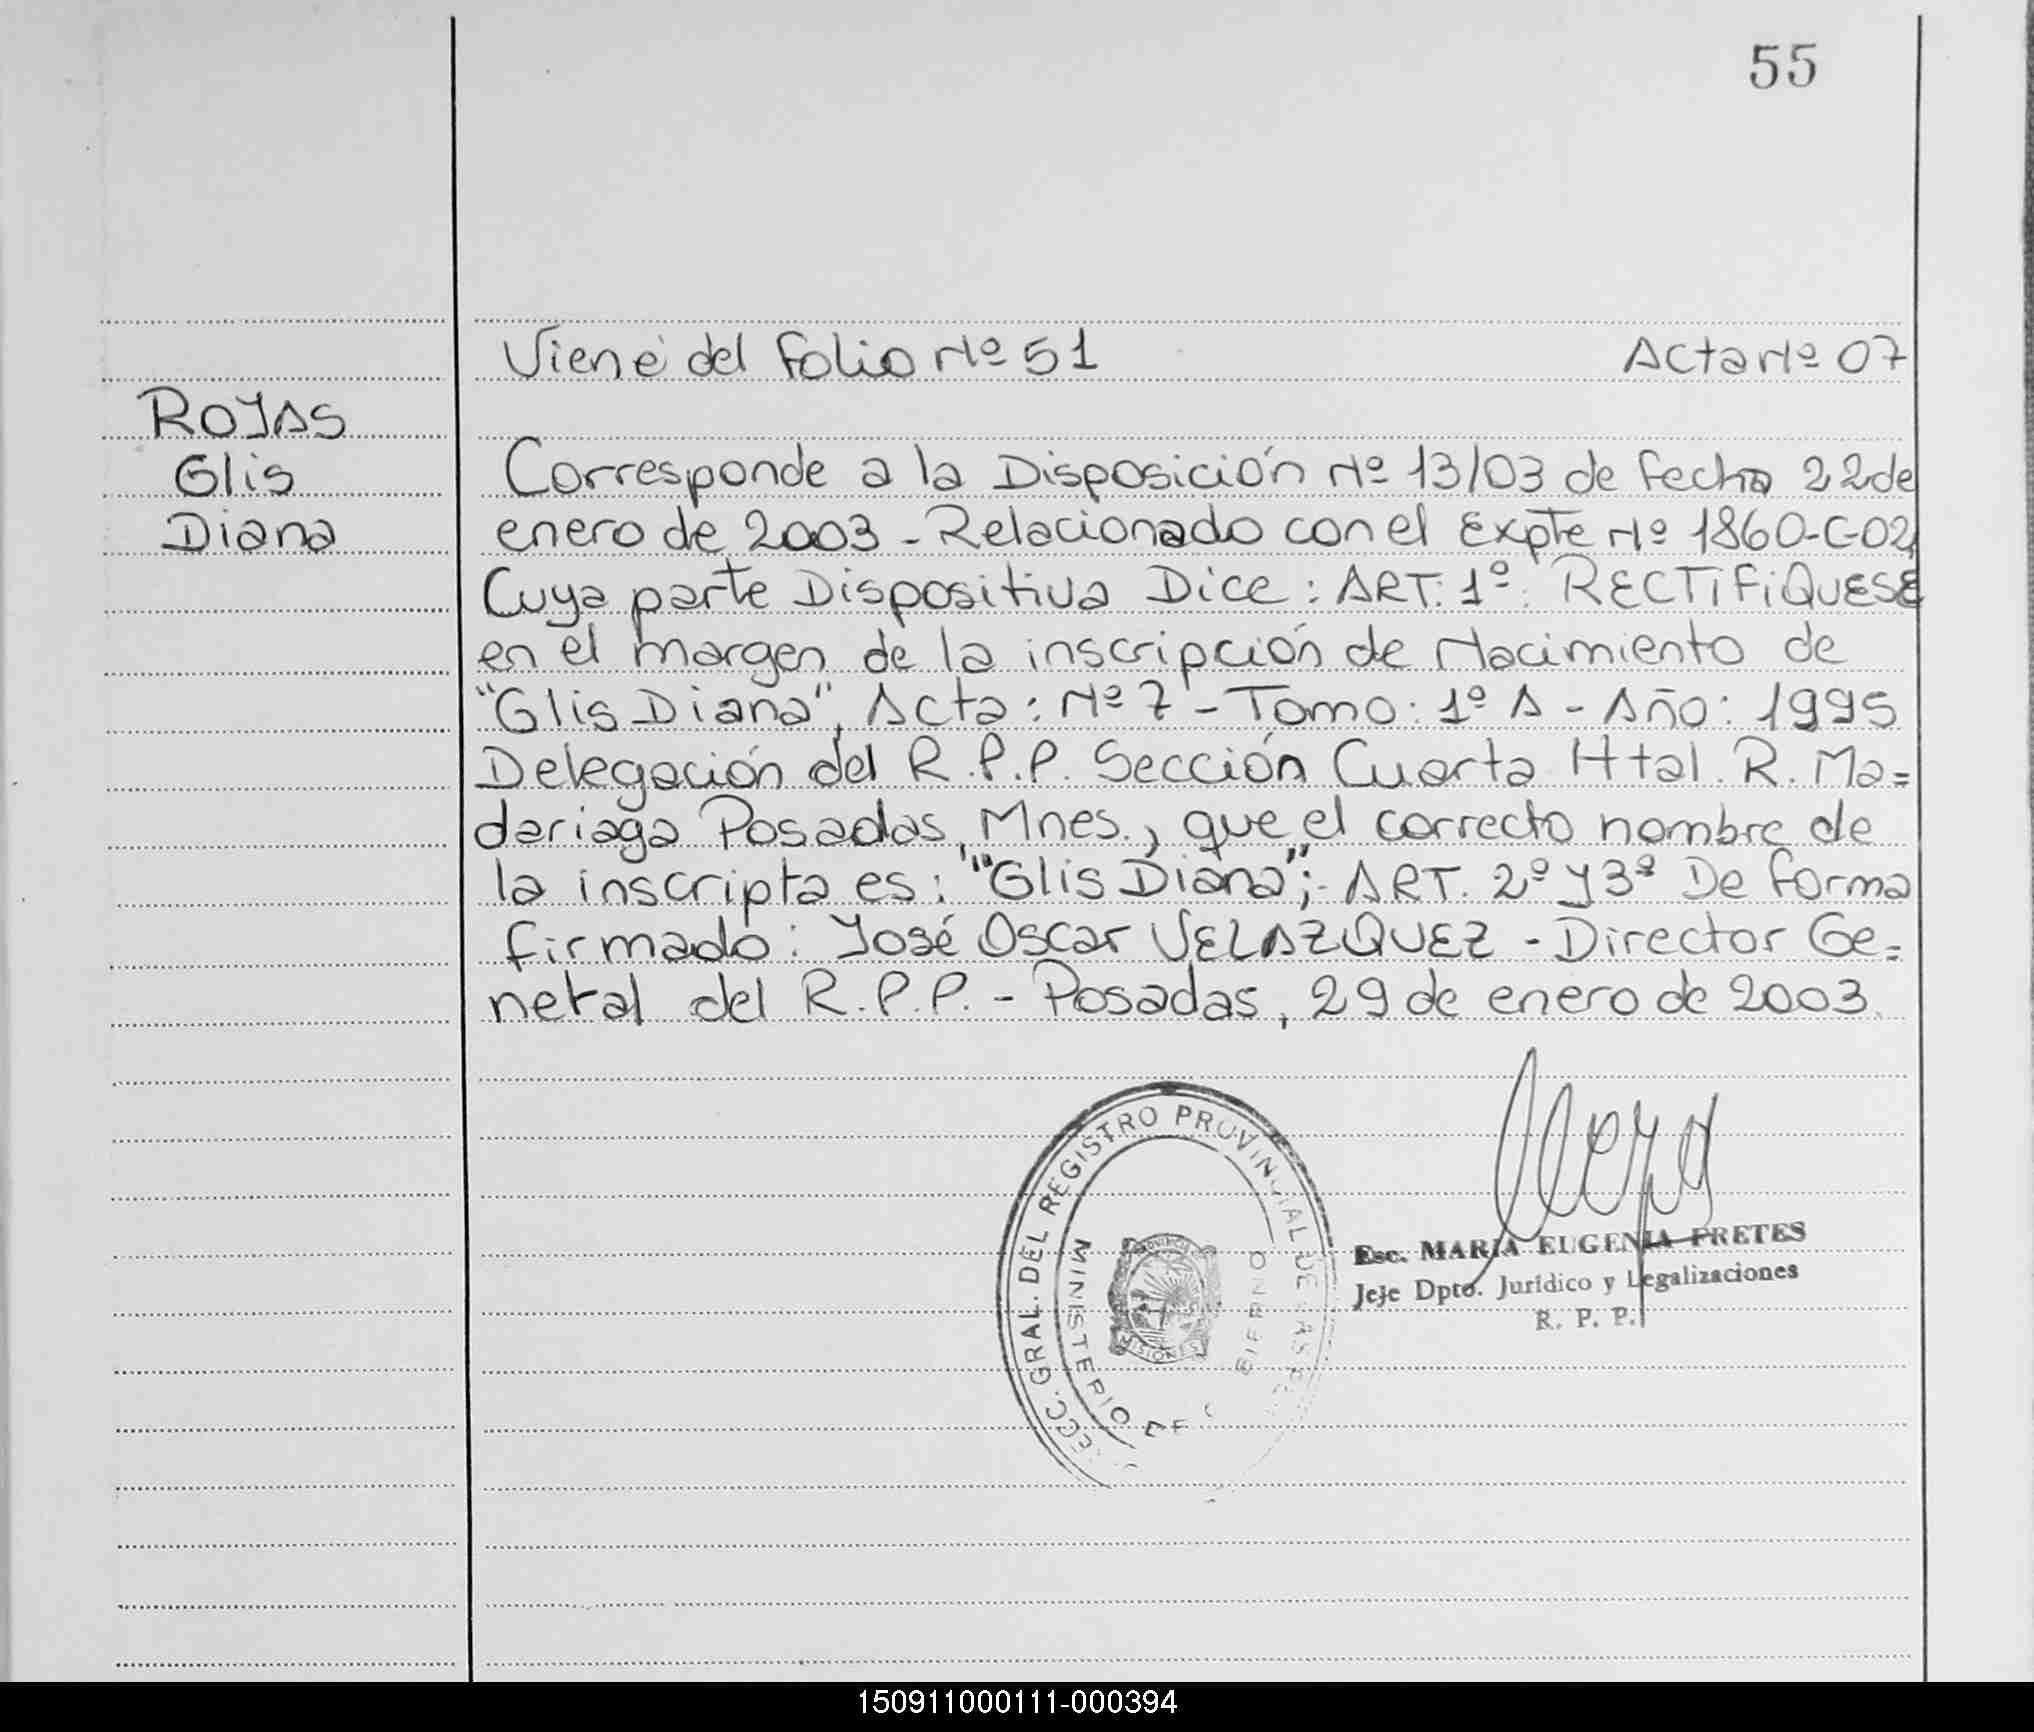 55
Viene del folio Nº 51 Acta Nº 07
ROJAS
Glis
Diana
Corresponde a la Disposición Nº 13/03 de fecha 22 de
enero de 2003 - Relacionado con el Expte Nº 1860-C-02,
Cuya parte Dispositiva Dice: ART: 1º: RECTIFIQUESE
en el margen de la inscripción de Nacimiento de
"Glis Diana", Acta: Nº 7 - Tomo: 1º A - Año: 1995
Delegación del R.P.P. Sección Cuarta Htal. R. Ma=
dariaga Posadas, Mnes., que el correcto nombre de
la inscripta es: "Glis Diana"; ART. 2º y 3º De forma
firmado: José Oscar VELAZQUEZ - Director Ge=
netal del R.P.P. - Posadas, 29 de enero de 2003.
GRAL. DEL REGISTRO PROVINCIAL DE LAS
MINISTERIO DE
PROVINCIA
MISIONES
Esc. MARIA EUGENIA PRETES
Jeje Dpto. Jurídico y Legalizaciones
R. P. P.
150911000111-000394